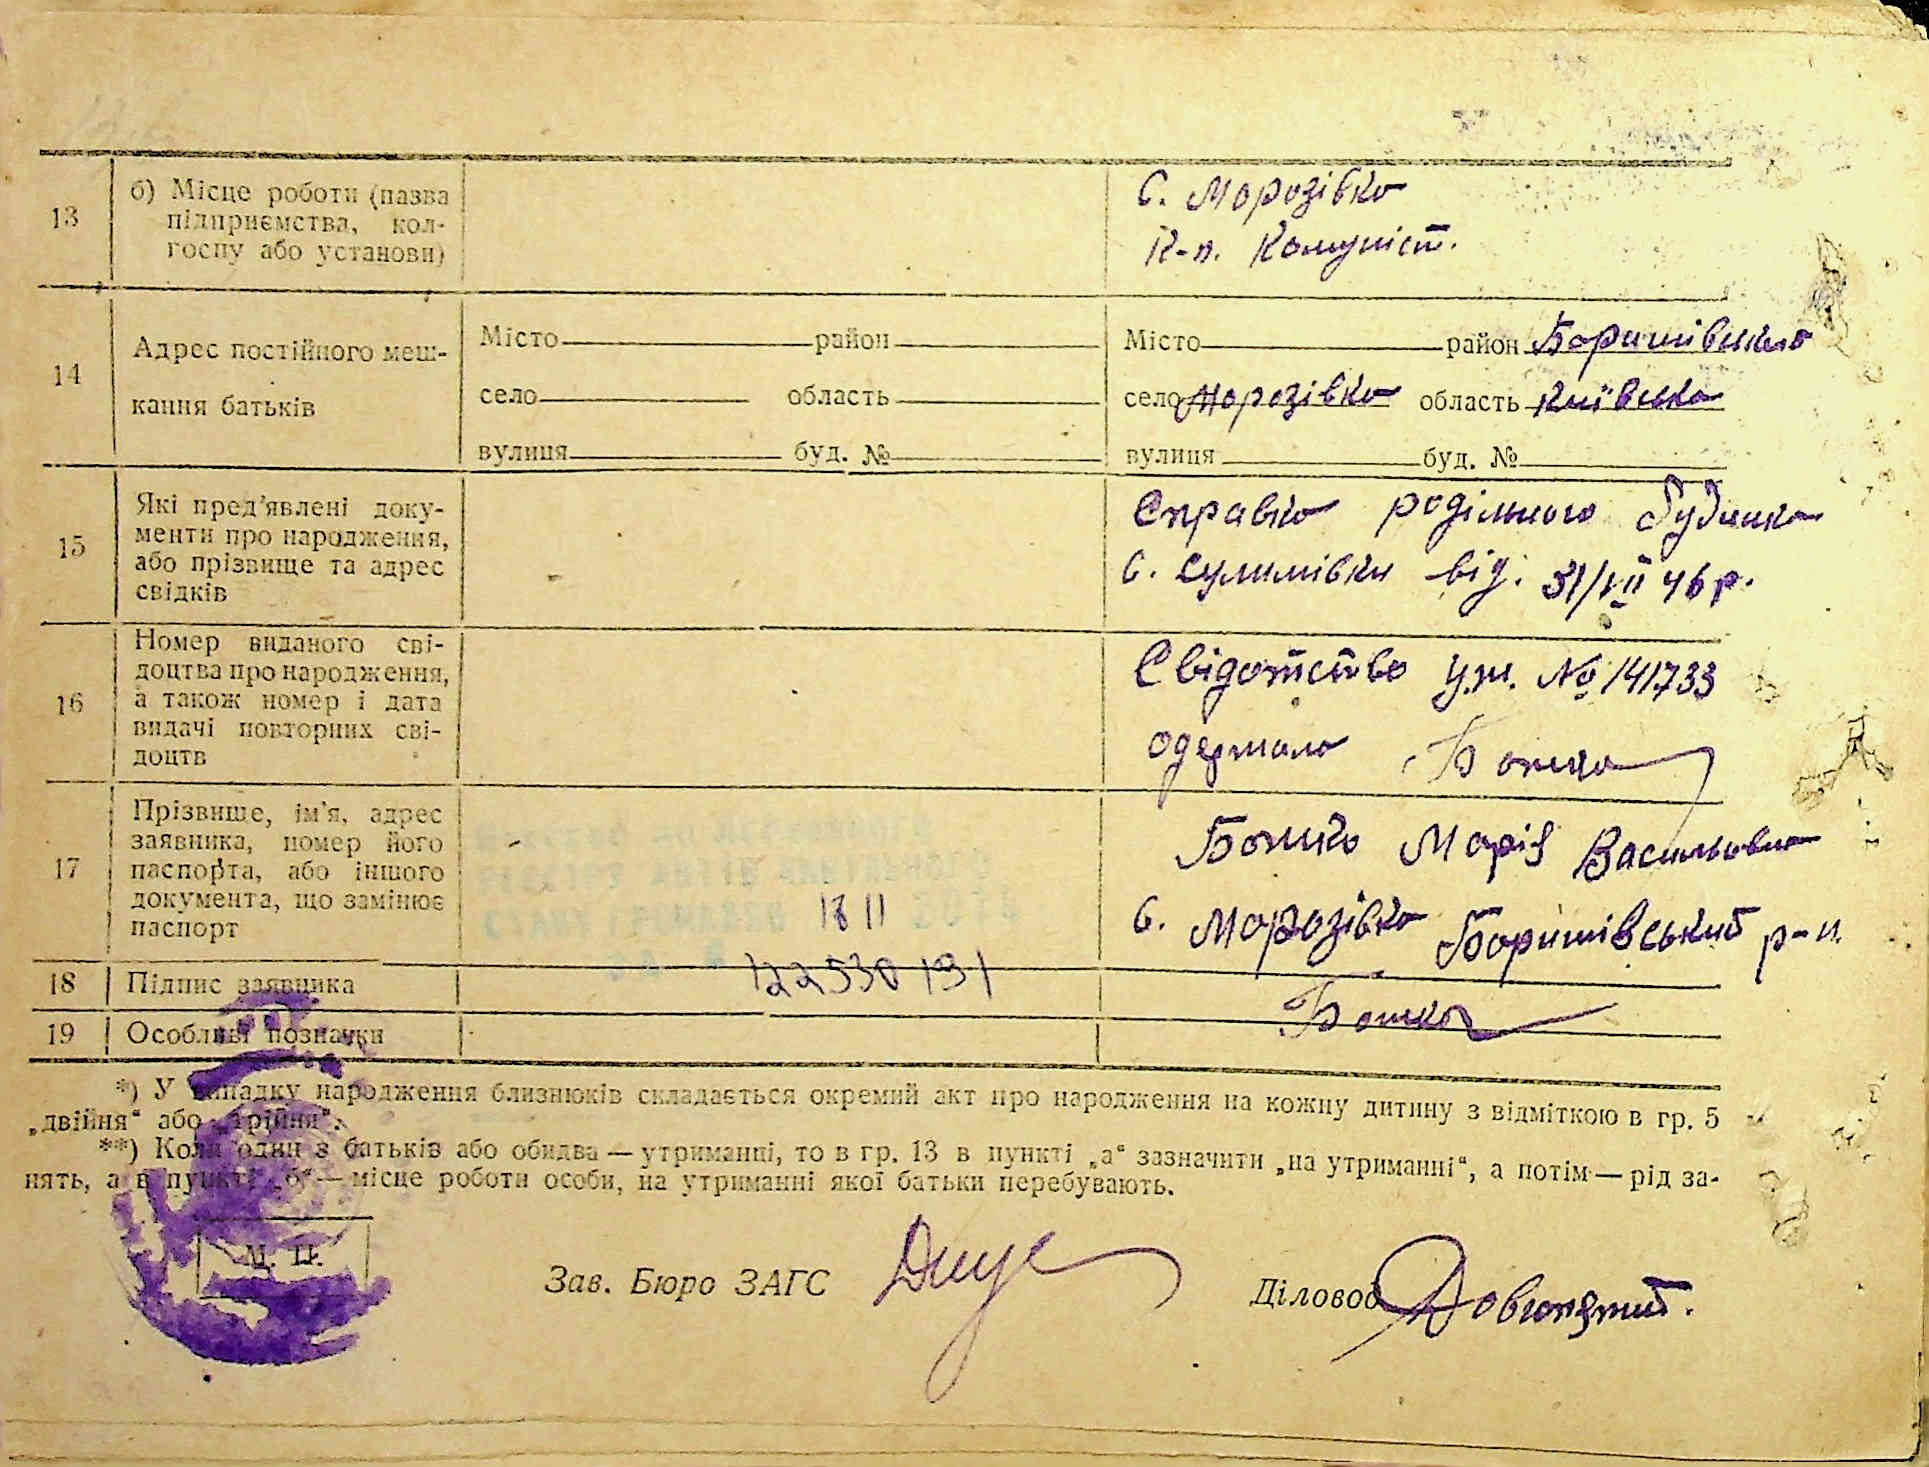 13
б) Місце роботи (назва
підприємства, кол-
госпу або установи)
с. Морозівка
К-п. Комуніст.
14
Адрес постійного меш-
кання батьків
Місто район
село область
вулиця буд. №
Місто район Баришівська
село Морозівка область Київська
вулиця буд. №
15
Які пред'явлені доку-
менти про народження,
або прізвище та адрес
свідків
Справка родільного будинка
с. Сулимівки від. 31/VII 46 р.
16
Номер виданого сві-
доцтва про народження,
а також номер і дата
видачі повторних сві-
доцтв
Свідотство № 141733
одержала Бошко
17
Прізвище, ім'я, адрес
заявника, номер його
паспорта, або іншого
документа, що замінює
паспорт
18 11
122530 131
Бошко Марія Васильовна
с. Морозівка Баришівський р-н.
18
Підпис заявника
Бошко
19
Особливі позначки
*) У випадку народження близнюків складається окремий акт про народження на кожну дитину з відміткою в гр. 5
„двійня“ або „трійня“.
**) Коли один з батьків або обидва — утриманці, то в гр. 13 в пункті „а“ зазначити „на утриманні“, а потім — рід за-
нять, а в пункті „б“ — місце роботи особи, на утриманні якої батьки перебувають.
М. П.
Зав. Бюро ЗАГС
Діловод